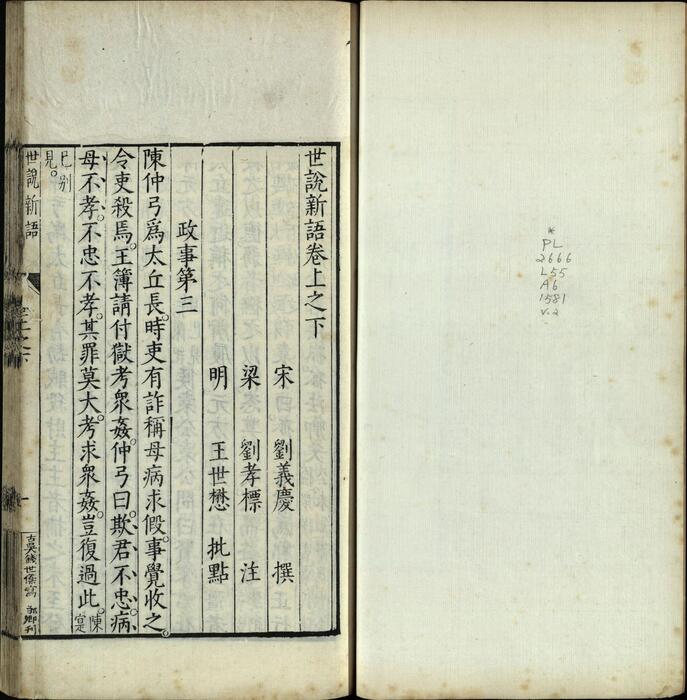 世說新語卷上之下
宋 劉義慶 撰
梁 劉孝標 注
明 王世懋 批點
政事第三
陳仲弓爲太丘長。時吏有詐稱母病求假。事覺收之。
令吏殺焉。主簿請付獄考衆姦。仲弓曰。欺君不忠。病
母不孝。不忠不孝。其罪莫大。考求衆姦。豈復過此。陳寔
已別
見。
世說新語
卷上之下
一
古吳錢世傑寫
*
PL
2666
L55
A6
1581
v.2